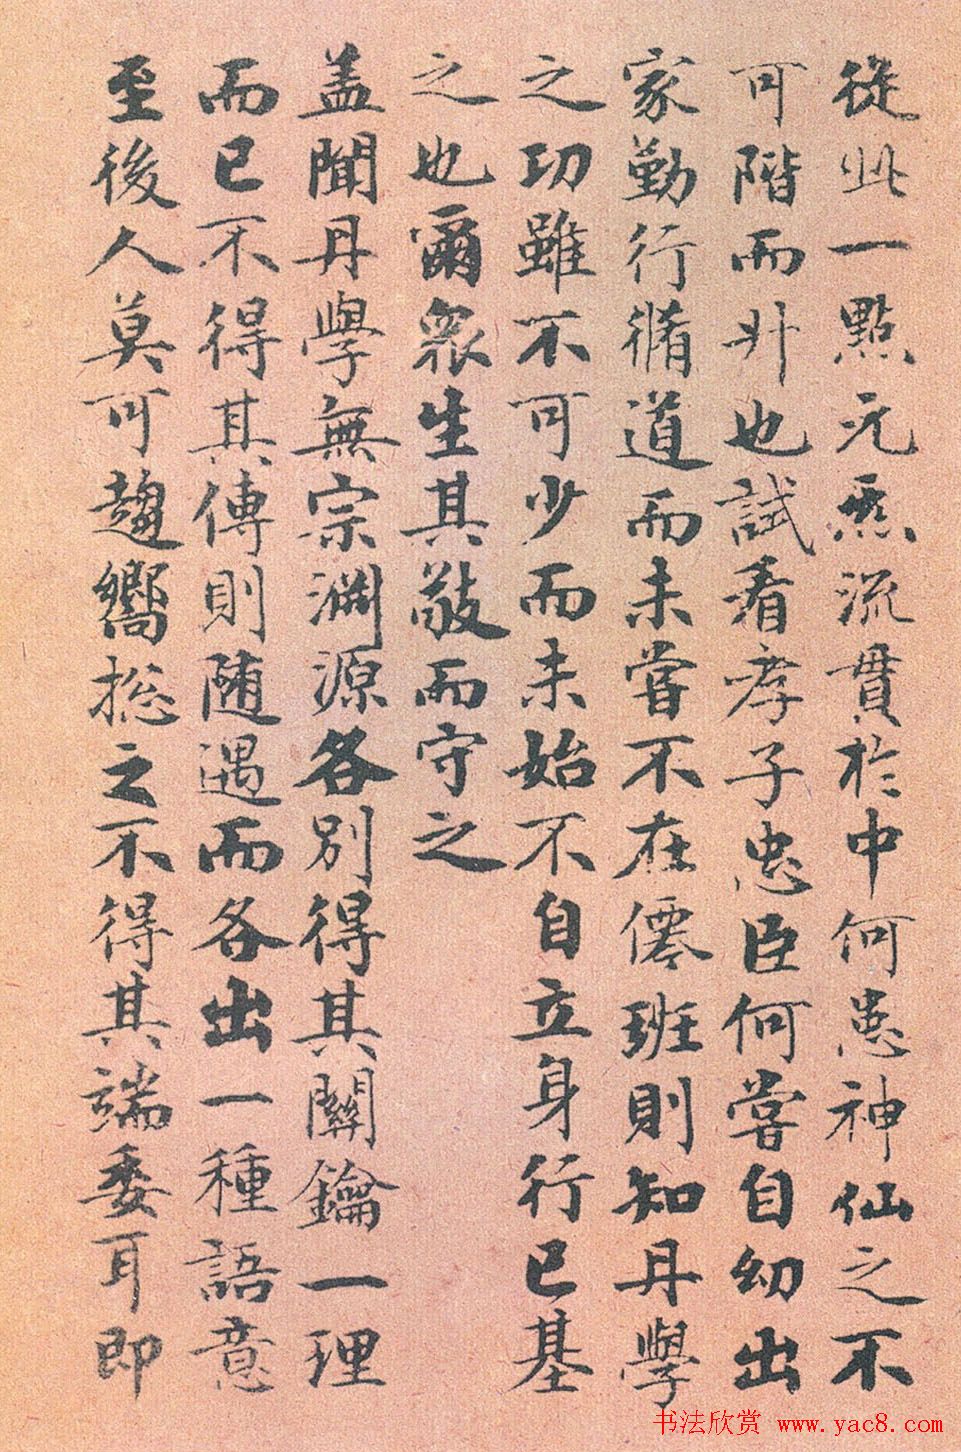 從此一點元炁流貫於中何患神仙之不
可階而升也試看孝子忠臣何嘗自幼出
家勤行脩道而未嘗不在僊班則知丹學
之功雖不可少而未始不自立身行已基
之也爾眾生其敬而守之
蓋聞丹學無宗淵源各別得其關鑰一理
而已不得其傳則随遇而各出一種語意
至後人莫可趨嚮揔之不得其端委耳即
书法欣赏 www.yac8.com